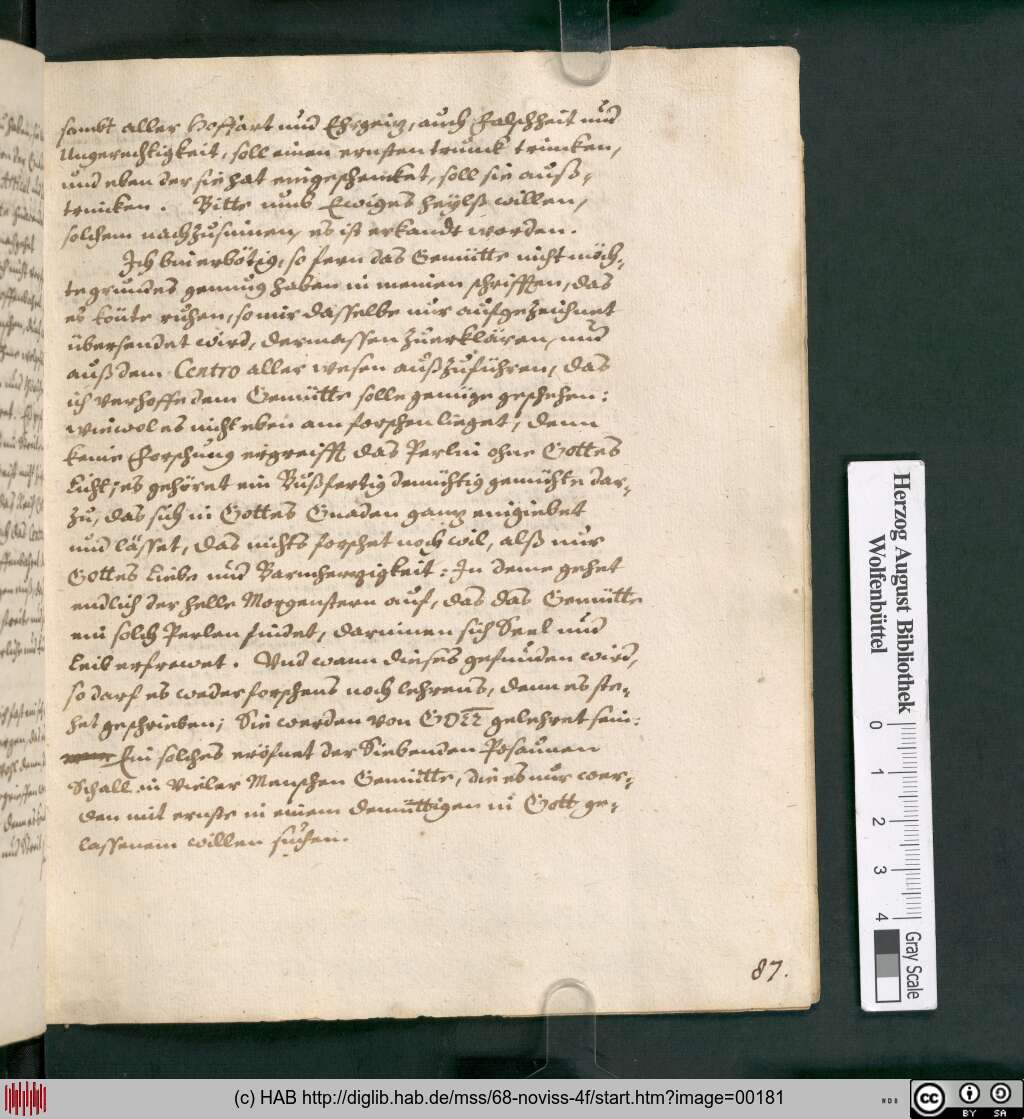 sambt aller Hoffart und Ehrgeitz, auch Falschheit und
Ungerechtigkeit, soll einen ernsten trunck trincken,
und eben der sie hat eingeschencket, soll sie auß-
trincken. Bitte umb Ewiges heylß willen,
solchem nachzusinnen, es ist erkandt worden.
Ich bin erbötig, so fern das Gemütte nicht möch-
te grundes gennug haben in meinen schrifften, das
es könte ruhen, so mir dasselbe nur aufgezeichnet
übersendet wird, dermassen zuerklären, und
auß dem Centro aller wesen außzuführen, das
ich verhoffe dem Gemütte solle genüge geschehen:
wiewol es nicht eben am forschen lieget, denn
keine Forschung ergreifft das Perlin ohne Gottes
Licht; es gehöret ein Bußfertig demühtig gemühte dar-
zu, das sich in Gottes Gnaden gantz einigiebet
und lässet, das nichts forschet noch wil, alß nur
Gottes Liebe und Barmhertzigkeit: In deme gehet
endlich der helle Morgenstern auf, das das Gemütte
ein solch Perlen findet, darinnen sich Seel und
Leib erfrewet. Und wann dieses gefunden wird,
so darf es weder forschens noch lehrens, denn es ste-
het geschrieben; Sie werden von GOTT gelehret sein:
Ein solches eröfnet der Siebenden Posaunen
Schall in vieler Menschen Gemütte, die es nur wer-
den mit ernste in einem demüttigen in Gott ge-
lassenem willen suchen.
87.
Herzog August Bibliothek
Wolfenbüttel
0 1 2 3 4
Gray Scale
(c) HAB http://diglib.hab.de/mss/68-noviss-4f/start.htm?image=00181
cc BY SA